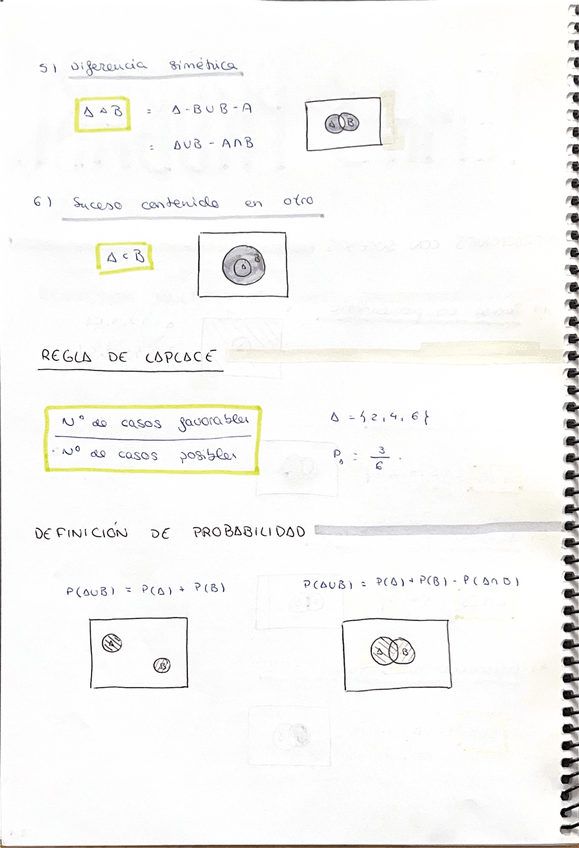 5) Diferencia simétrica
A △ B = A-B∪B-A
= A∪B - A∩B
A B
6) Suceso contenido en otro
A ⊂ B
A B
REGLA DE LAPLACE
Nº de casos favorables
Nº de casos posibles
A = {2,4,6}
P_A = 3/6.
DEFINICIÓN DE PROBABILIDAD
P(A∪B) = P(A) + P(B)
P(A∪B) = P(A) + P(B) - P(A∩B)
A B
A B